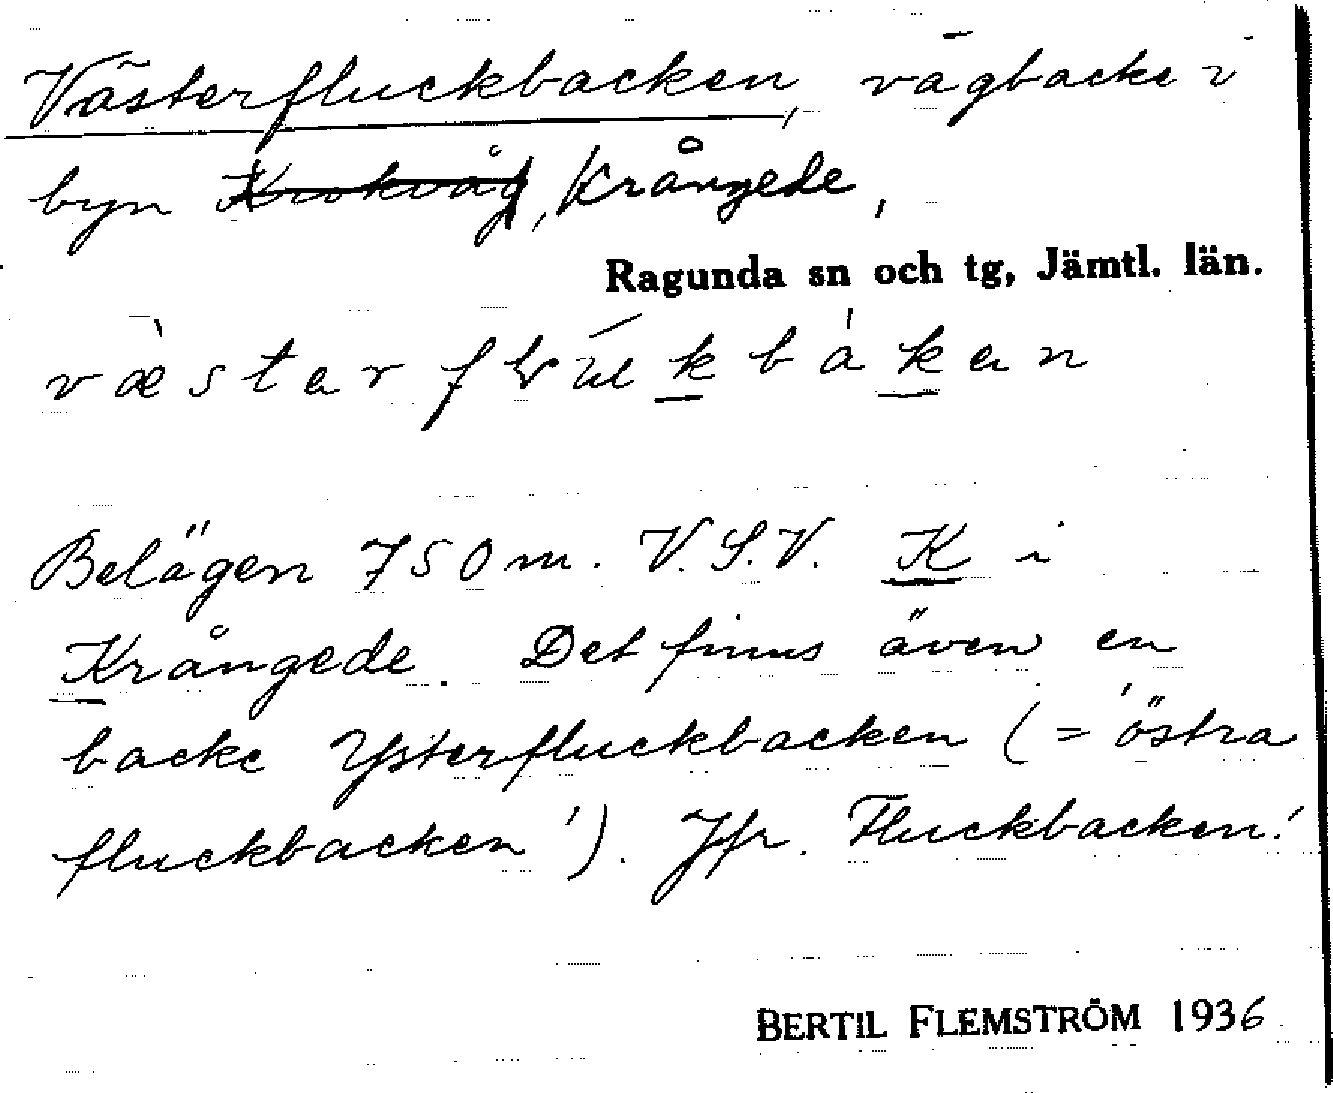 Västerfluckbacken, vägbacke i
byn Krokvåg, Krångede,
Ragunda sn och tg, Jämtl. län.
Belägen 750 m. V.S.V. K i
Krångede. Det finns även en
backe Ysterfluckbacken (= 'östra
fluckbacken'). Jfr. Fluckbacken!
BERTIL FLEMSTRÖM 1936